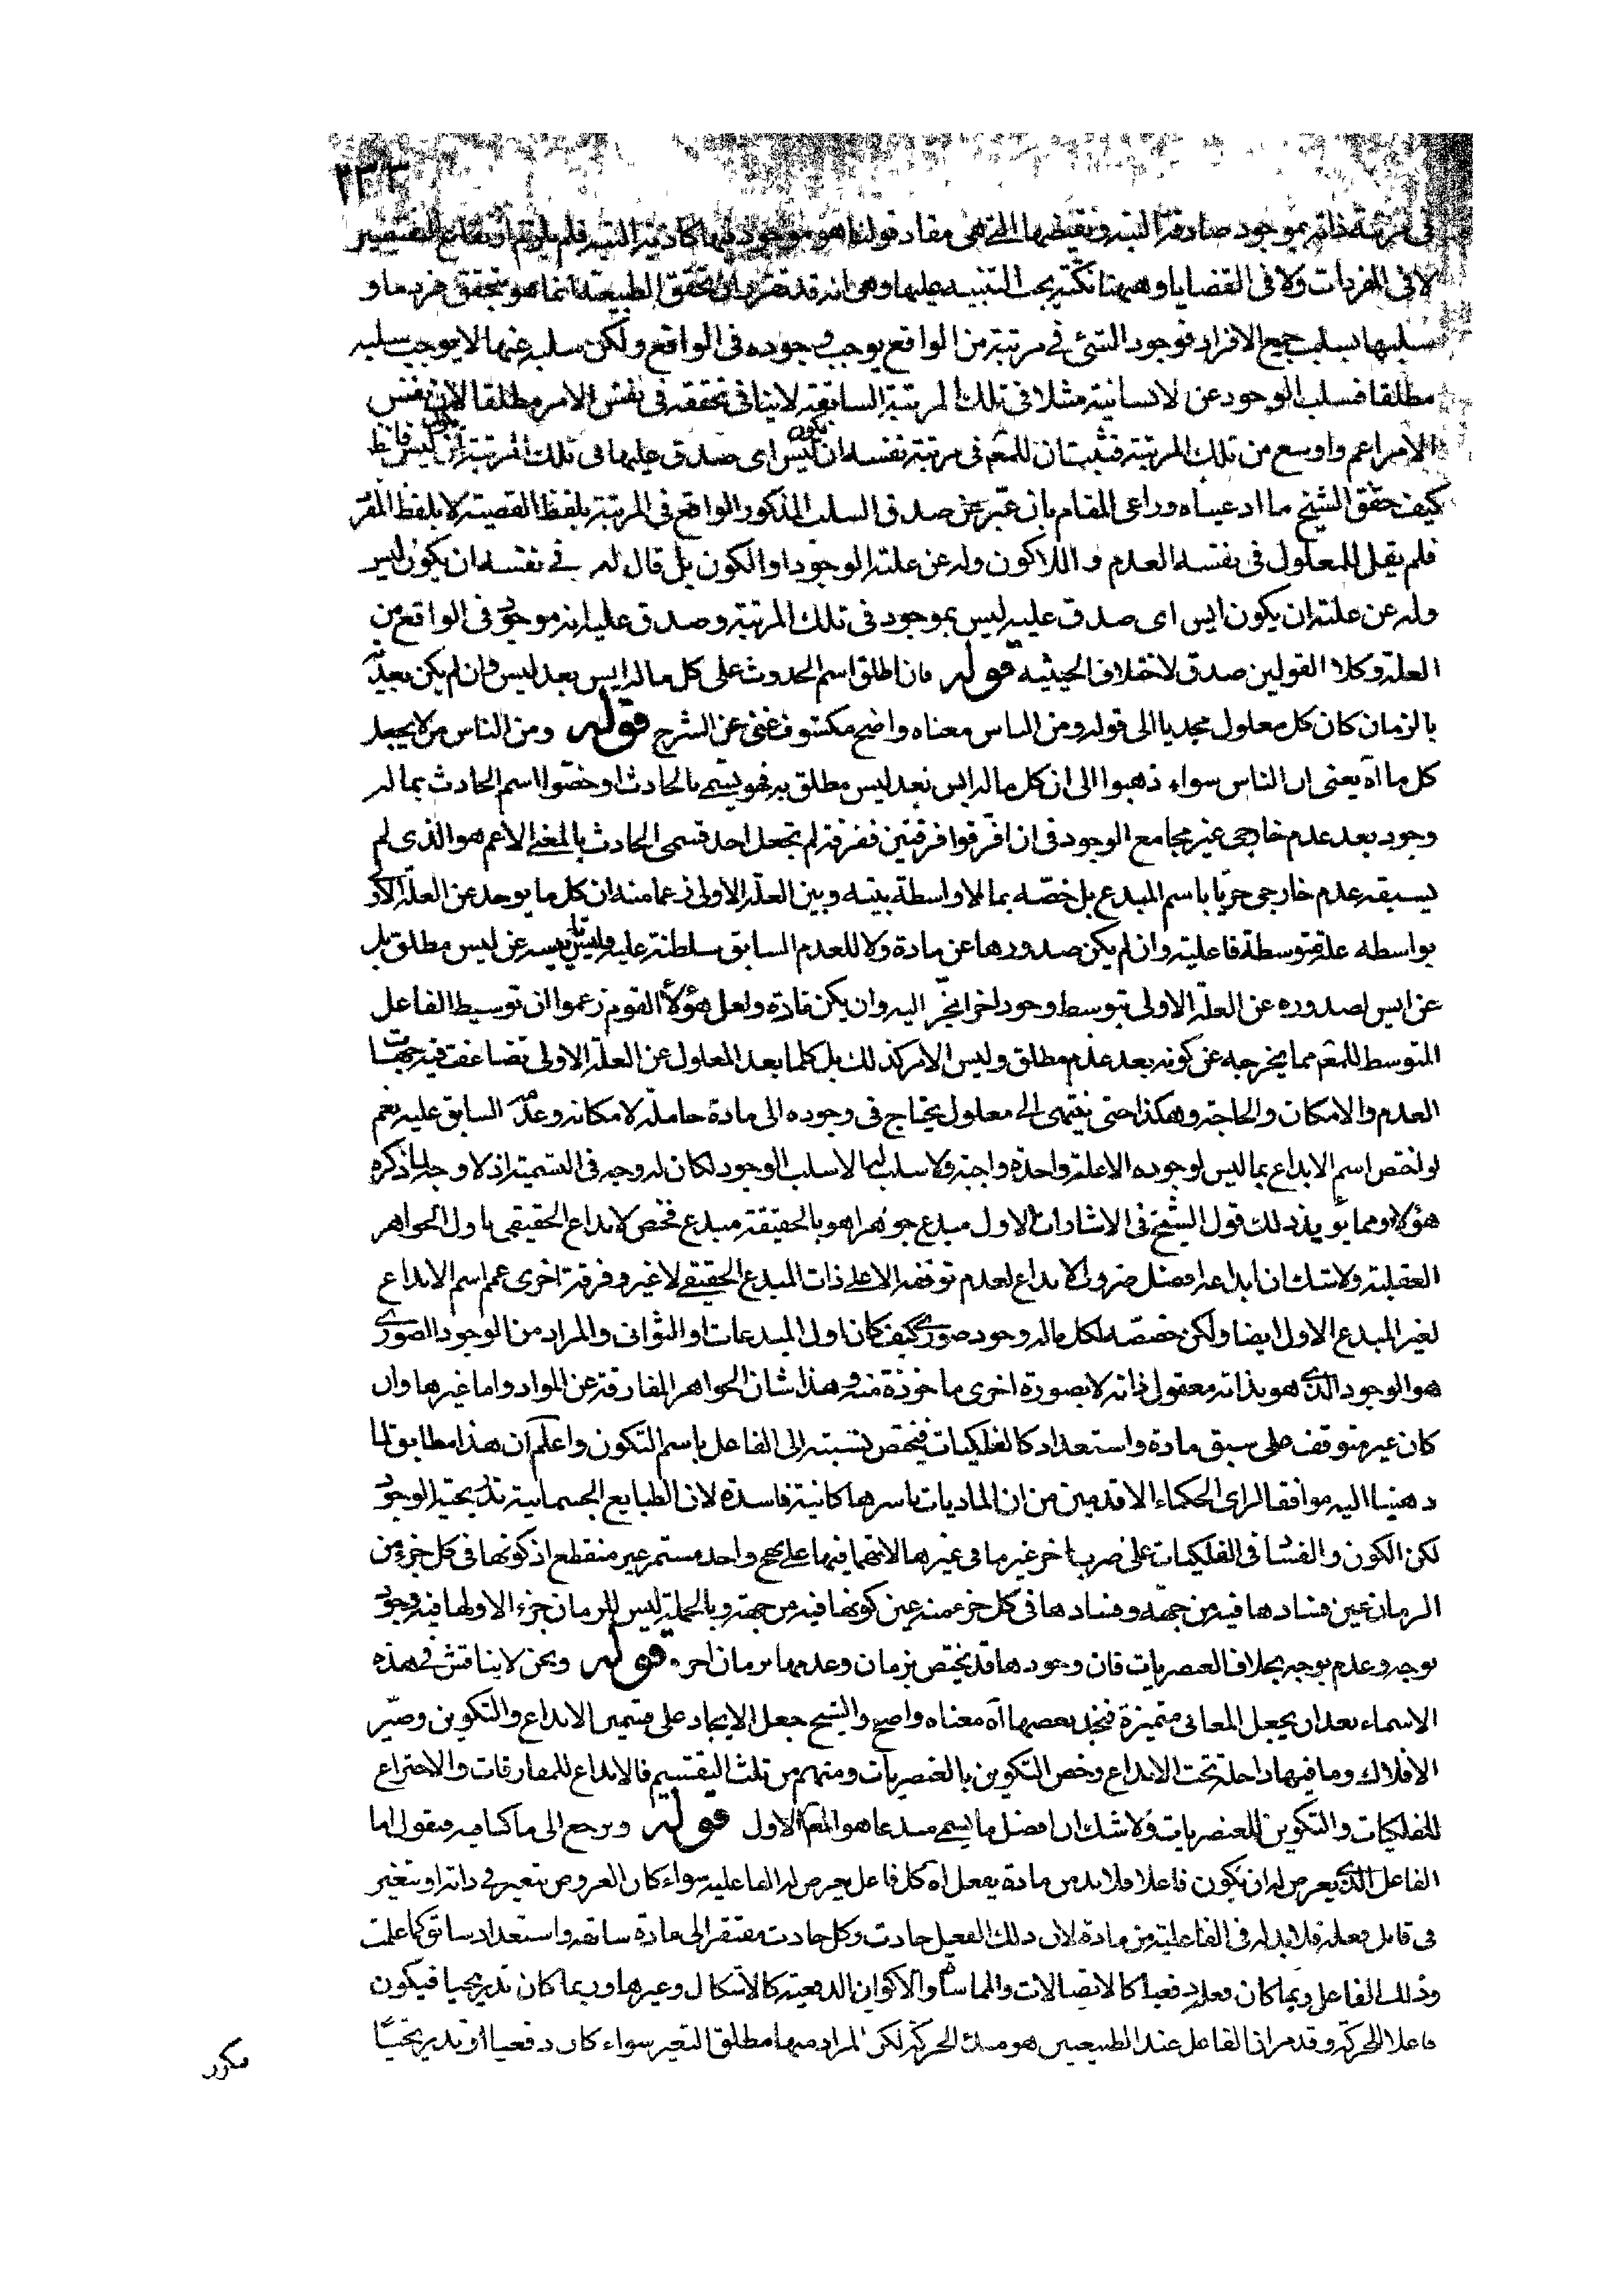 ٢٣٣
فى مرتبة ذاته بموجود صادقة البتة ونقيضها التى هى مفاد قولنا هو موجود فيها كاذبة البتة فلم يلزم ارتفاع النقيضين
لا فى المفردات ولا فى القضايا وههنا نكتة يجب التنبيه عليها وهى انه قد تقرر ان تحقق الطبيعة انما هو بتحقق فرد ما و
سلبها بسلب جميع الافراد فوجود الشئ فى مرتبة من الواقع يوجب وجوده فى الواقع ولكن سلبه عنها لا يوجب سلبه
مطلقا فسلب الوجود عن الانسانية مثلا فى تلك المرتبة السابقة لا ينافى تحققه فى نفس الامر مطلقا لان نفس
الامر اعم واوسع من تلك المرتبة فثبت ان للمعم فى مرتبة نفسه ان يكون ليس اى صدق عليها فى تلك المرتبة ان يكون ليس فانظ
كيف حقق الشيخ ما ادعيناه وراعى المقام بان عبّر عن صدق السلب المذكور الواقع فى المرتبة بلفظ القضية لا بلفظ المفر
فلم يقل للمعلول فى نفسه العدم و اللاكون وله عن علته الوجود او الكون بل قال له فى نفسه ان يكون ليس
وله عن علته ان يكون ايس اى صدق عليه ليس بموجود فى تلك المرتبة وصدق عليه انه موجود فى الواقع من
العلة وكلا القولين صدق لاختلاف الحيثية قوله فان اطلق اسم الحدوث على كل ما له ايس بعد ليس وان لم يكن بعديّه
بالزمان كان كل معلول محدثا الى قوله ومن الناس معناه واضح مكشوف غنى عن الشرح قوله ومن الناس من لا يجعل
كل ما آه يعنى ان الناس سواء ذهبوا الى ان كل ما له ايس بعد ليس مطلق به فهو يسمى بالحادث او خصّوا اسم الحادث بما له
وجود بعد عدم خارجى غير مجامع الوجود فى ان افترقوا فرقتين ففرقة لم تجعل احد قسمى الحادث بالمعنى الاعم هو الذى لم
يسبقه عدم خارجى حريّا باسم المبدع بل خصّه بما لا واسطة بينه وبين العلة الاولى زعما منه ان كل ما يوجد عن العلة الاو
بواسطه علة متوسطة فاعلية وان لم يكن صدورها عن مادة ولا للعدم السابق سلطنة عليه وليس تاييسه عن ليس مطلق بل
عن ايس لصدوره عن العلة الاولى بتوسط وجود اخر انجرّ اليه وان يكن مادة ولعل هؤلاء القوم زعموا ان توسيط الفاعل
المتوسط للمعم مما يخرجه عن كونه بعد عدم مطلق وليس الامر كذلك بل كلما بعد المعلول عن العلة الاولى تضاعفت فيه جهات
العدم والامكان والحاجة وهكذا حتى ينتهى الى معلول يحتاج فى وجوده الى مادة حاملة لامكانه وعدمه السابق عليه نعم
لو اختص اسم الابداع بما ليس لوجوده الا علة واحدة واجبة ولا سلب لها الا سلب الوجود لكان له وجه فى التسمية اذ لا وجه لما ذكره
هؤلاء ومما يؤيد ذلك قول الشيخ فى الاشارات الاول مبدع جوهرا هو بالحقيقة مبدع فخص الابداع الحقيقى باول الجواهر
العقلية ولا شك ان ابداعه افضل ضروب الابداع لعدم توقفه الا على ذات المبدع الحقيقى لا غير وفرقة اخرى عمم اسم الابداع
لغير المبدع الاول ايضا ولكن خصصه لكل ما له وجود صورى كيف كان اول المبدعات او الثوانى والمراد من الوجود الصورى
هو الوجود الذى هو بذاته معقول ذاته لا بصورة اخرى ماخوذة منه وهذا شان الجواهر المفارقة عن المواد واما غيرها وان
كان غير متوقف على سبق مادة واستعداد كالفلكيات فيختص نسبته الى الفاعل باسم التكون واعلم ان هذا مطابق لما
ذهبنا اليه موافقا لراى الحكماء الاقدمين من ان الماديات باسرها كائنة فاسدة لان الطبايع الجسمانية تدريجية الوجود
لكن الكون والفسا فى الفلكيات على ضرب اخر غير ما فى غيرها لانهما فيها على نهج واحد مستمر غير منقطع اذ كونها فى كل جزء من
الزمان عين فسادها فيه من جهة وفسادها فى كل جزء منه عين كونها فيه من جهة وبالجملة ليس للزمان جزء الا ولها فيه وجود
بوجه وعدم بوجه بخلاف العنصريات فان وجودها قد يختص بزمان وعدمها بزمان اخر قوله ونحن لا نناقش فى هذه
الاسماء بعد ان يجعل المعانى متميزة فنجد بعضها آه معناه واضح والشيخ جعل الايجاد على قسمين الابداع والتكوين وصيّر
الافلاك وما فيها داخلة تحت الابداع وخص التكوين بالعنصريات ومنهم من ثلث التقسيم فالابداع للمفارقات والاختراع
للفلكيات والتكوين للعنصريات ولا شك ان افضل ما يسمى مبدعا هو المعم الاول قوله ونرجع الى ما كنا فيه فنقول اما
الفاعل الذى يعرض له ان يكون فاعلا فلا بد من مادة يفعل آه كل فاعل يعرض له الفاعلية سواء كان العروض بتغير فى ذاته او بتغير
فى قابل فعله فلا بد له فى الفاعلية من مادة لان ذلك الفعل حادث وكل حادث مفتقر الى مادة سابقه واستعداد سابق كما علمت
وذلك الفاعل ربما كان فعله دفعيا كالاتصالات والمماسات والاكوان الدفعية كالاشكال وغيرها وربما كان تدريجيا فيكون
فاعلا للحركة وقد مر ان الفاعل عند الطبيعيين هو مبدأ الحركة لكن المراد منها مطلق التغير سواء كان دفعيا او تدريجيّا
مكرر